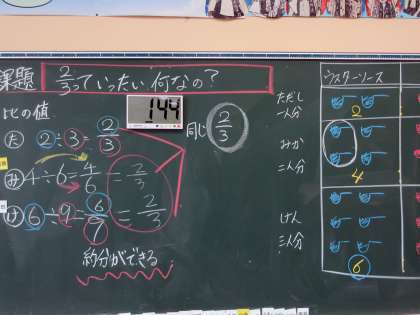 課題 2/3っていったい何なの？
比の値
144
た 2÷3=2/3
み 4÷6=4/6=2/3
け 6÷9=6/9=2/3
約分ができる
同じ 2/3
ただし
一人分
みか
二人分
けん
三人分
ウスターソース
2
4
6